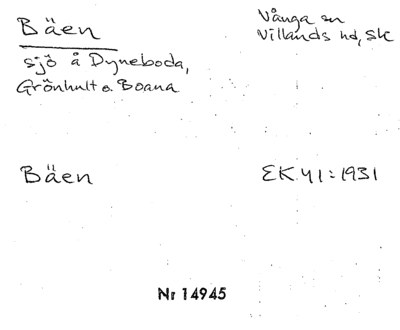 Bäen
Vånga sn
Villands hd, Sk
sjö å Dyneboda,
Grönhult o. Boana
Bäen
EK 41:1931
Nr 14945